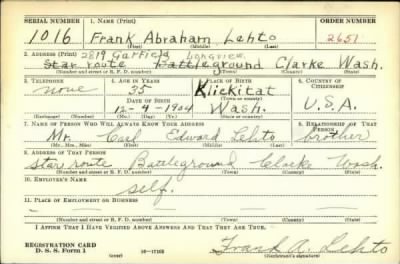 SERIAL NUMBER 1. NAME (Print) ORDER NUMBER
1016 Frank Abraham Lehto 2651
(First) (Middle) (Last)
2. ADDRESS (Print) 2819 Garfield Longview
Star route Battleground Clarke Wash.
(Number and street or R. F. D. number) (Town) (County) (State)
3. TELEPHONE 4. AGE IN YEARS 5. PLACE OF BIRTH 6. COUNTRY OF CITIZENSHIP
none 35 Klickitat
(Town or county)
DATE OF BIRTH
12-4-1904 Wash. U.S.A.
(Exchange) (Number) (Mo.) (Day) (Yr.) (State or country)
7. NAME OF PERSON WHO WILL ALWAYS KNOW YOUR ADDRESS 8. RELATIONSHIP OF THAT PERSON
Mr. Carl Edward Lehto brother
(Mr., Mrs., Miss) (First) (Middle) (Last)
9. ADDRESS OF THAT PERSON
star route Battleground Clarke Wash.
(Number and street or R. F. D. number) (Town) (County) (State)
10. EMPLOYER'S NAME
self.
11. PLACE OF EMPLOYMENT OR BUSINESS
(Number and street or R. F. D. number) (Town) (County) (State)
I AFFIRM THAT I HAVE VERIFIED ABOVE ANSWERS AND THAT THEY ARE TRUE.
REGISTRATION CARD
D. S. S. Form 1 (over) Frank A. Lehto
(Registrant's signature)